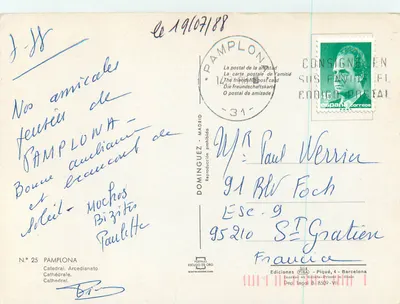 le 19/07/88
7-88
PAMPLONA
14
-31-
CONSIGNE EN
SUS
POSTAL
La postal de la amistad
La carte postale de l'amitié
The friendship post card
Die freundschaftskarte
O postal da amizade
ESPAÑA CORREOS
Nos amicales
pensées de
PAMPLONA -
Bonne ambiance
et beaucoup de
soleil -
Muchos
Bizites
Paulette
DOMINGUEZ - MADRID
Reproducción prohibida
Mr Paul Werrier
91 BLV Foch
Esc. 9
95210 ST Gratien
Francia
N.º 25 PAMPLONA
Catedral, Arcedianato
Cathédrale,
Cathedral,
Ediciones
Piqué, 1 - Barcelona